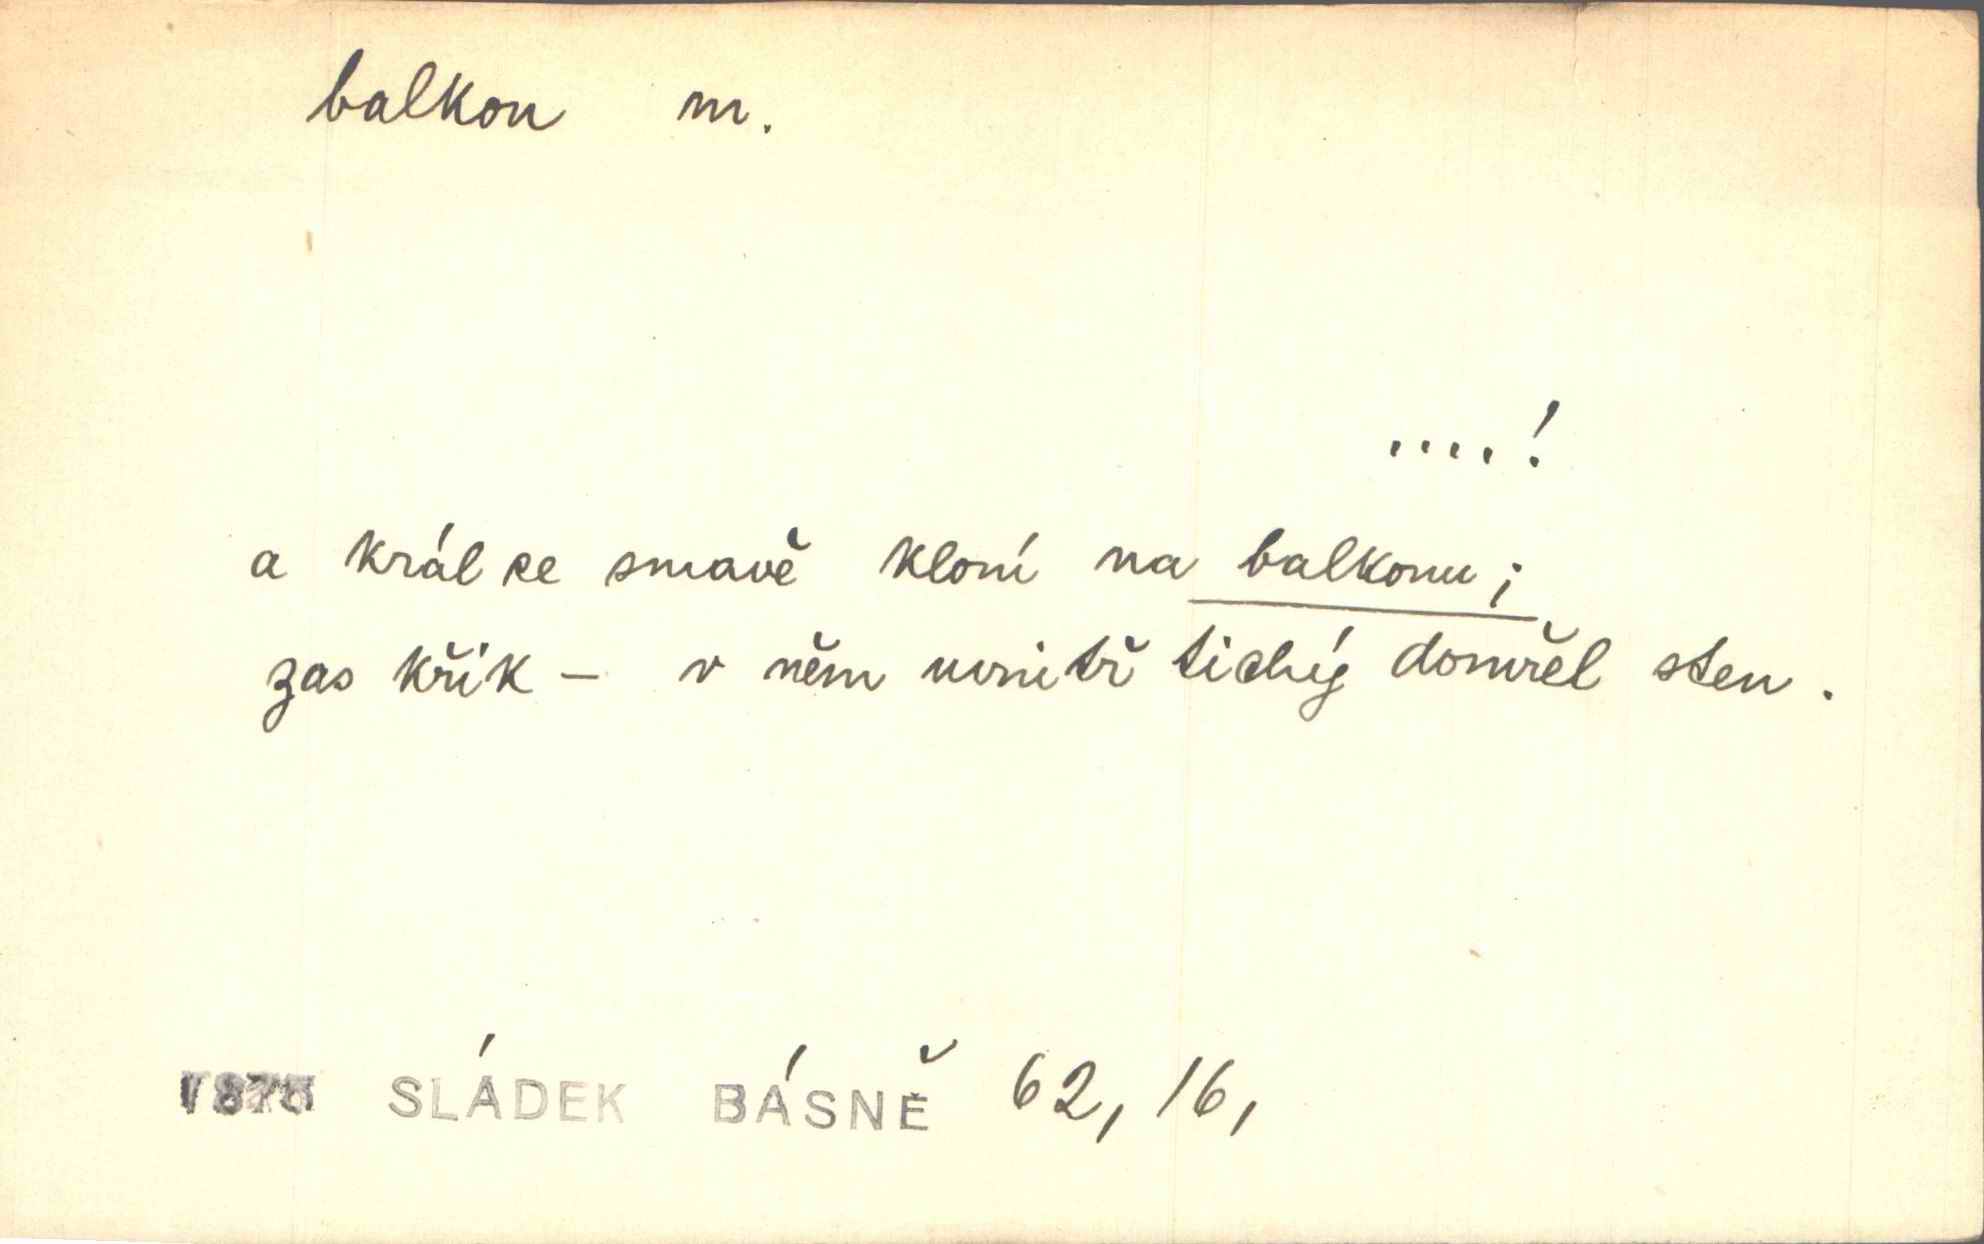 balkon m.
....!
a král se smavě kloní na balkonu;
zas křik - v něm uvnitř tichý domřel sten.
1875 SLÁDEK BÁSNĚ 62, 16,